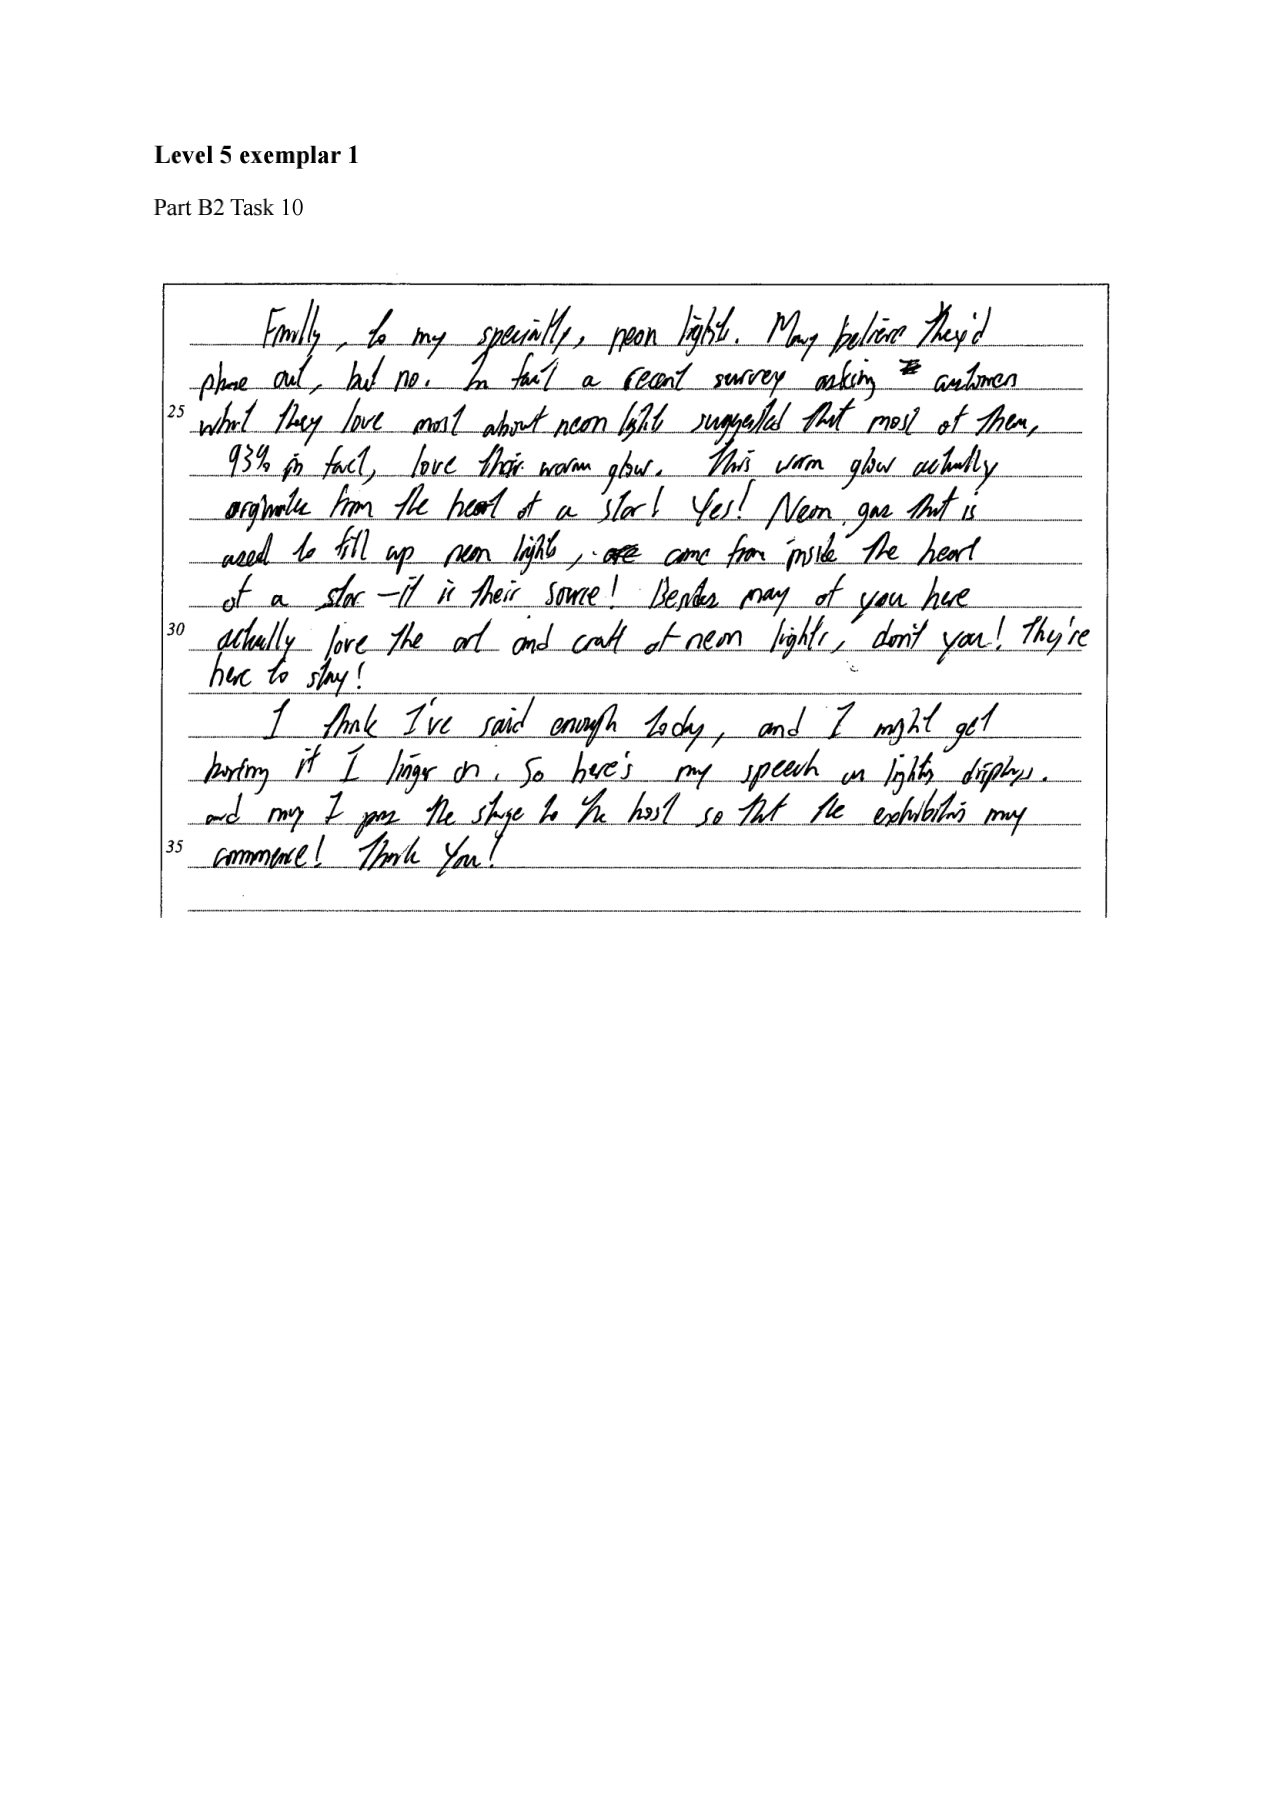 Level 5 exemplar 1
Part B2 Task 10
Finally, to my specialty, neon lights. Many believe they'd
phase out, but no. In fact a recent survey asking customers
25 what they love most about neon lights suggested that most of them,
93% in fact, love their warm glow. This warm glow actually
orginates from the heart of a star! Yes! Neon gas that is
used to fill up neon lights, come from inside the heart
of a star – it is their source! Besides many of you here
30 actually love the art and craft of neon lights, don't you! They're
here to stay!
I think I've said enough today, and I might get
boring if I linger on. So here's my speech on lights displays.
and may I pass the stage to the host so that the exhibition may
35 commence! Thank You!